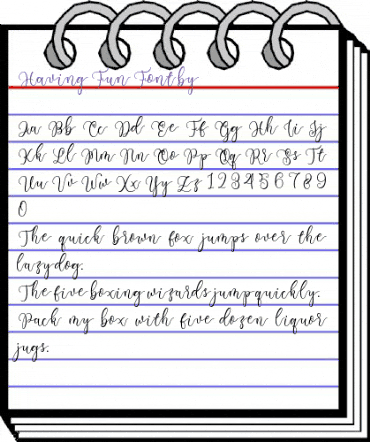 Having Fun Font by
Aa Bb Cc Dd Ee Ff Gg Hh Ii Jj
Kk Ll Mm Nn Oo Pp Qq Rr Ss Tt
Uu Vv Ww Xx Yy Zz 1 2 3 4 5 6 7 8 9
0
The quick brown fox jumps over the
lazy dog.
The five boxing wizards jump quickly.
Pack my box with five dozen liquor
jugs.